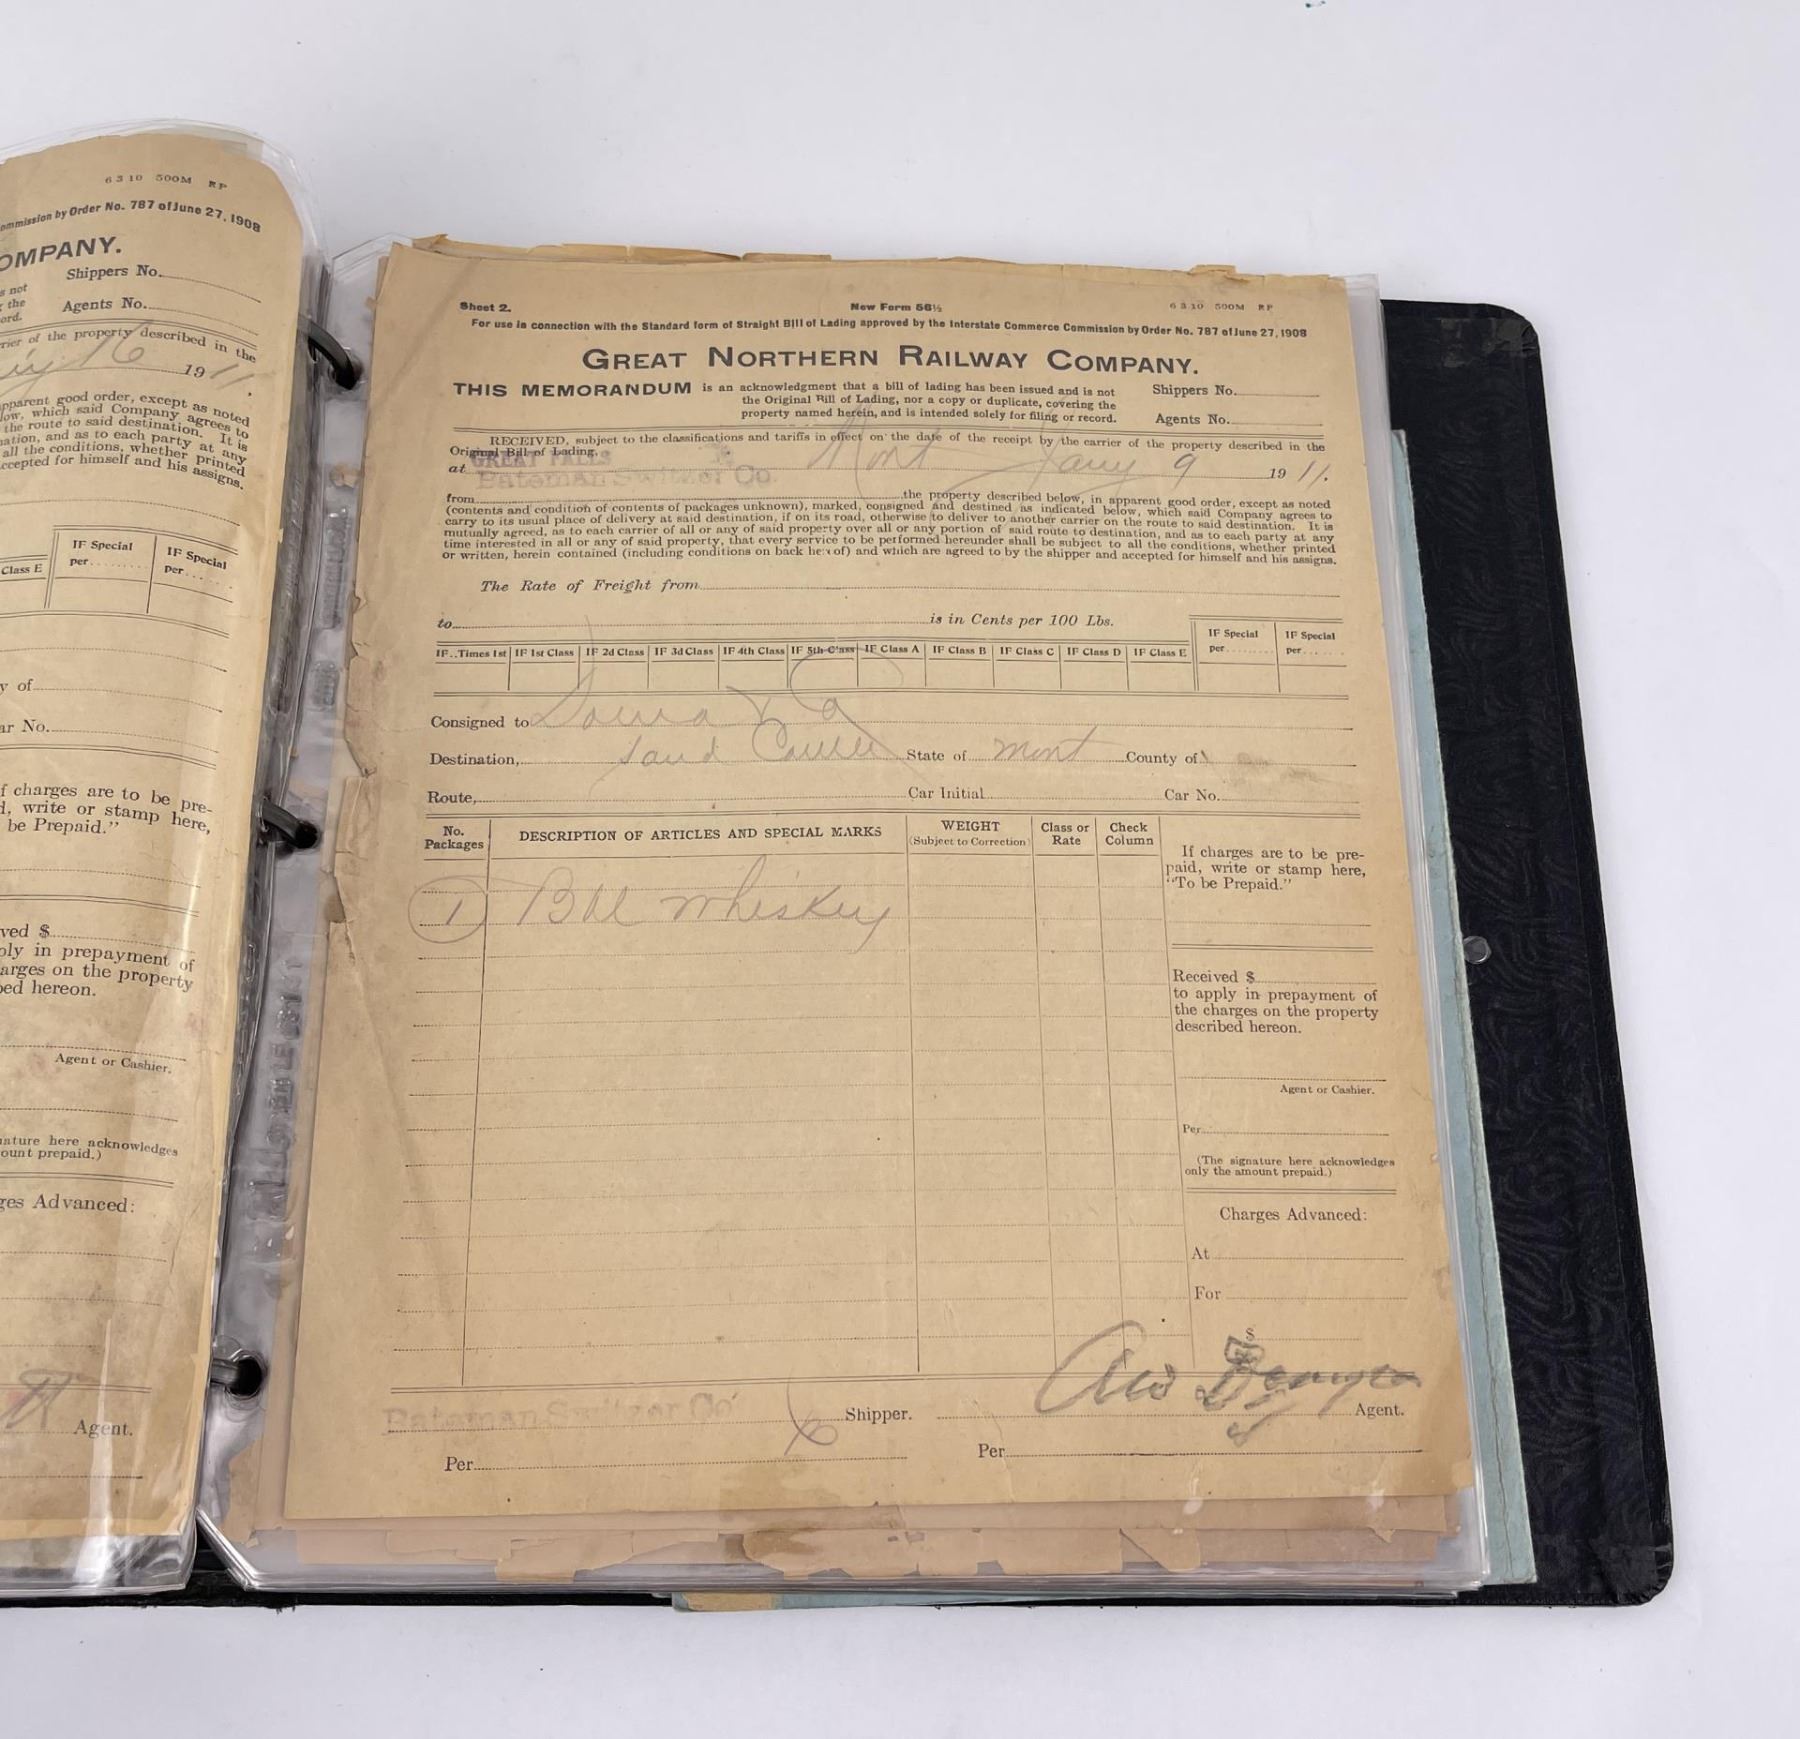 6 3 10 500M RP
ommission by Order No. 787 of June 27, 1908
OMPANY.
Shippers No.
s not
the
ord.
Agents No.
rier of the property described in the
16 1911.
apparent good order, except as noted
ow, which said Company agrees to
the route to said destination. It is
nation, and as to each party at any
all the conditions, whether printed
ccepted for himself and his assigns.
Class E
IF Special
per
IF Special
per
y of
ar No.
f charges are to be pre-
d, write or stamp here,
be Prepaid."
ved $
ply in prepayment of
arges on the property
bed hereon.
Agent or Cashier.
nature here acknowledges
ount prepaid.)
ges Advanced:
Agent.
Sheet 2.
New Form 56½
6 3 10 500M RP
For use in connection with the Standard form of Straight Bill of Lading approved by the Interstate Commerce Commission by Order No. 787 of June 27, 1908
GREAT NORTHERN RAILWAY COMPANY.
THIS MEMORANDUM is an acknowledgment that a bill of lading has been issued and is not
the Original Bill of Lading, nor a copy or duplicate, covering the
property named herein, and is intended solely for filing or record.
Shippers No.
Agents No.
RECEIVED, subject to the classifications and tariffs in effect on the date of the receipt by the carrier of the property described in the
Original Bill of Lading.
GREAT FALLS
at Mont Jany 9 1911.
Bateman Switzer Co.
from the property described below, in apparent good order, except as noted
(contents and condition of contents of packages unknown), marked, consigned and destined as indicated below, which said Company agrees to
carry to its usual place of delivery at said destination, if on its road, otherwise to deliver to another carrier on the route to said destination. It is
mutually agreed, as to each carrier of all or any of said property over all or any portion of said route to destination, and as to each party at any
time interested in all or any of said property, that every service to be performed hereunder shall be subject to all the conditions, whether printed
or written, herein contained (including conditions on back hereof) and which are agreed to by the shipper and accepted for himself and his assigns.
The Rate of Freight from
to is in Cents per 100 Lbs.
IF..Times 1st IF 1st Class IF 2d Class IF 3d Class IF 4th Class IF 5th Class IF Class A IF Class B IF Class C IF Class D IF Class E
IF Special
per
IF Special
per
Consigned to
Destination, Sand Coulee State of Mont County of
Route, Car Initial Car No.
No.
Packages
DESCRIPTION OF ARTICLES AND SPECIAL MARKS
WEIGHT
(Subject to Correction)
Class or
Rate
Check
Column
1 Bbl Whiskey
If charges are to be pre-
paid, write or stamp here,
"To be Prepaid."
Received $
to apply in prepayment of
the charges on the property
described hereon.
Agent or Cashier.
Per
(The signature here acknowledges
only the amount prepaid.)
Charges Advanced:
At
For
$
Bateman Switzer Co Shipper.
Agent.
Per
Per